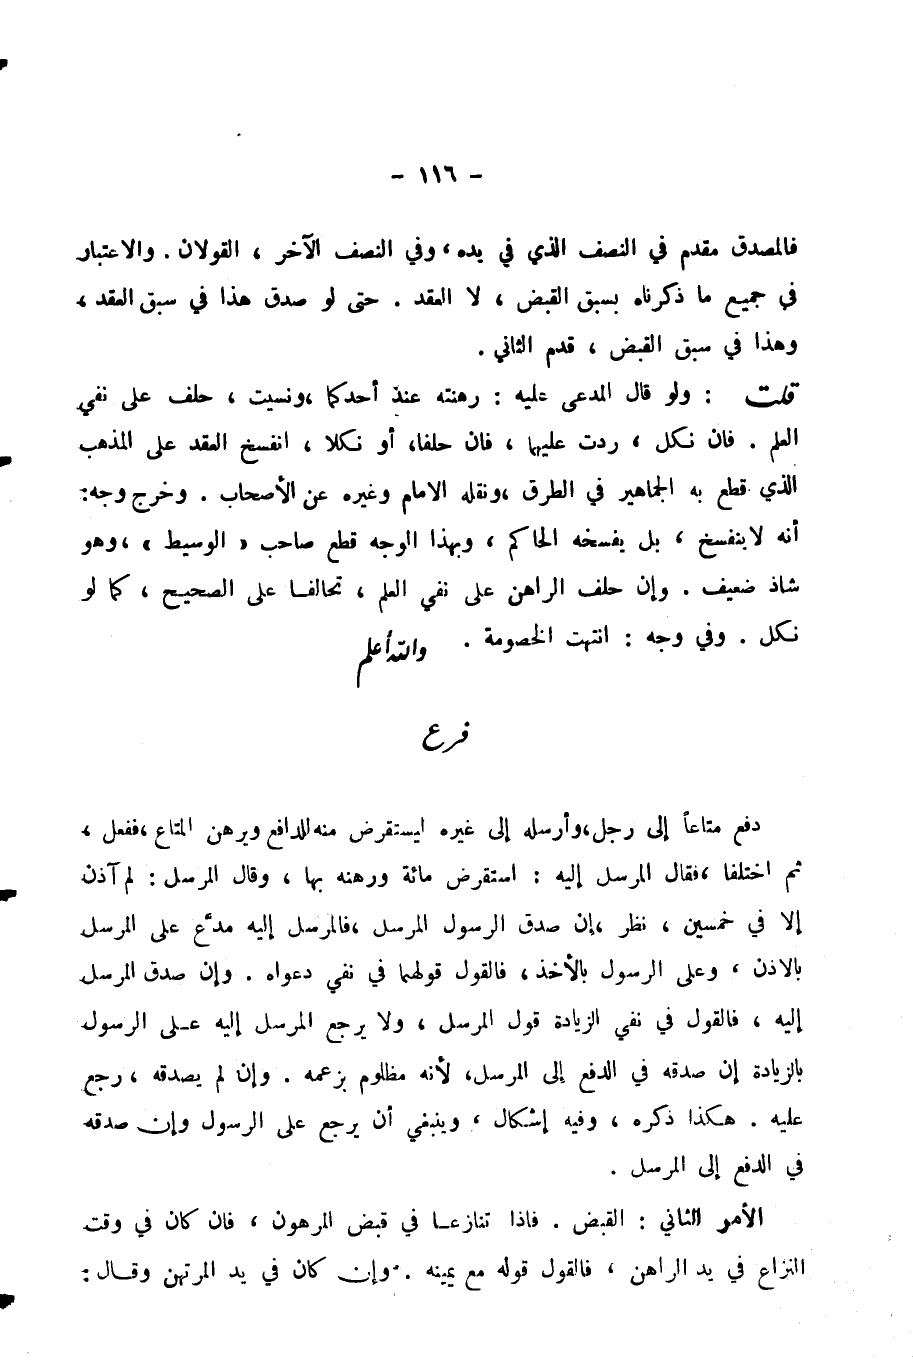 - ١١٦ -
فالمصدق مقدم في النصف الذي في يده ، وفي النصف الآخر ، القولان . والاعتبار
في جميع ما ذكرناه بسبق القبض ، لا العقد . حتى لو صدق هذا في سبق العقد ،
وهذا في سبق القبض ، قدم الثاني .
قلت : ولو قال المدعى عليه : رهنته عند أحدكما ، ونسيت ، حلف على نفي
العلم . فان نكل ، ردت عليهما ، فان حلفا، أو نكلا ، انفسخ العقد على المذهب
الذي قطع به الجماهير في الطرق ،ونقله الامام وغيره عن الأصحاب . وخرج وجه:
أنه لا ينفسخ ، بل يفسخه الحاكم ، وبهذا الوجه قطع صاحب « الوسيط » ،وهو
شاذ ضعيف . وإن حلف الراهن على نفي العلم ، تحالفا على الصحيح ، كما لو
نكل . وفي وجه : انتهت الخصومة . والله أعلم
فرع
دفع متاعاً إلى رجل،وأرسله إلى غيره ليستقرض منه للدافع ويرهن المتاع ،ففعل ،
ثم اختلفا ،فقال المرسل إليه : استقرض مائة ورهنه بها ، وقال المرسل : لم آذن
إلا في خمسين ، نظر ،إن صدق الرسول المرسل ،فالمرسل إليه مدَّع على المرسل
بالاذن ، وعلى الرسول بالأخذ ، فالقول قولهما في نفي دعواه . وإن صدق المرسل
إليه ، فالقول في نفي الزيادة قول المرسل ، ولا يرجع المرسل إليه عـلى الرسول
بالزيادة إن صدقه في الدفع إلى المرسل، لأنه مظلوم بزعمه . وإن لم يصدقه ، رجع
عليه . هكذا ذكره ، وفيه إشكال ، وينبغي أن يرجع على الرسول وإن صدقه
في الدفع إلى المرسل .
الأمر الثاني : القبض . فاذا تنازعـا في قبض المرهون ، فان كان في وقت
النزاع في يد الراهن ، فالقول قوله مع يمينه . وإن كان في يد المرتهن وقـال :